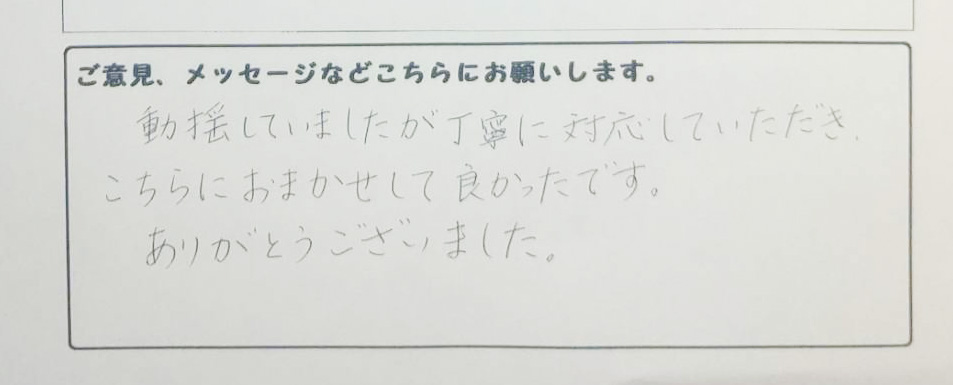 ご意見、メッセージなどこちらにお願いします。
動揺していましたが丁寧に対応していただき、
こちらにおまかせして良かったです。
ありがとうございました。